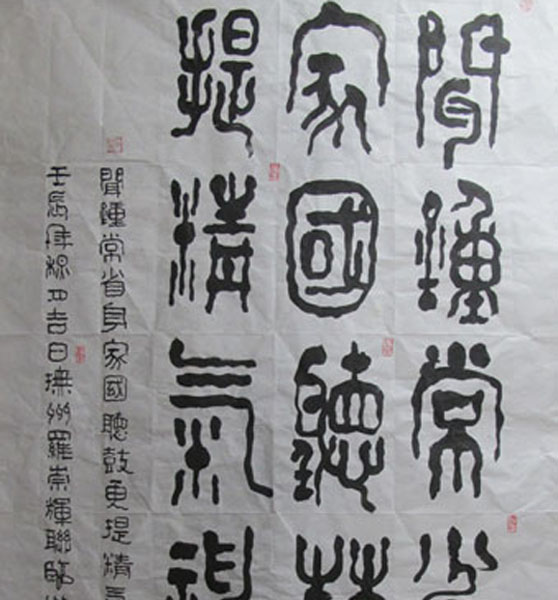 聞鍾常
家國聽
提精氣神
聞鍾常省身家國聽鼓更提精氣
壬辰年吉日撫州羅崇輝聯